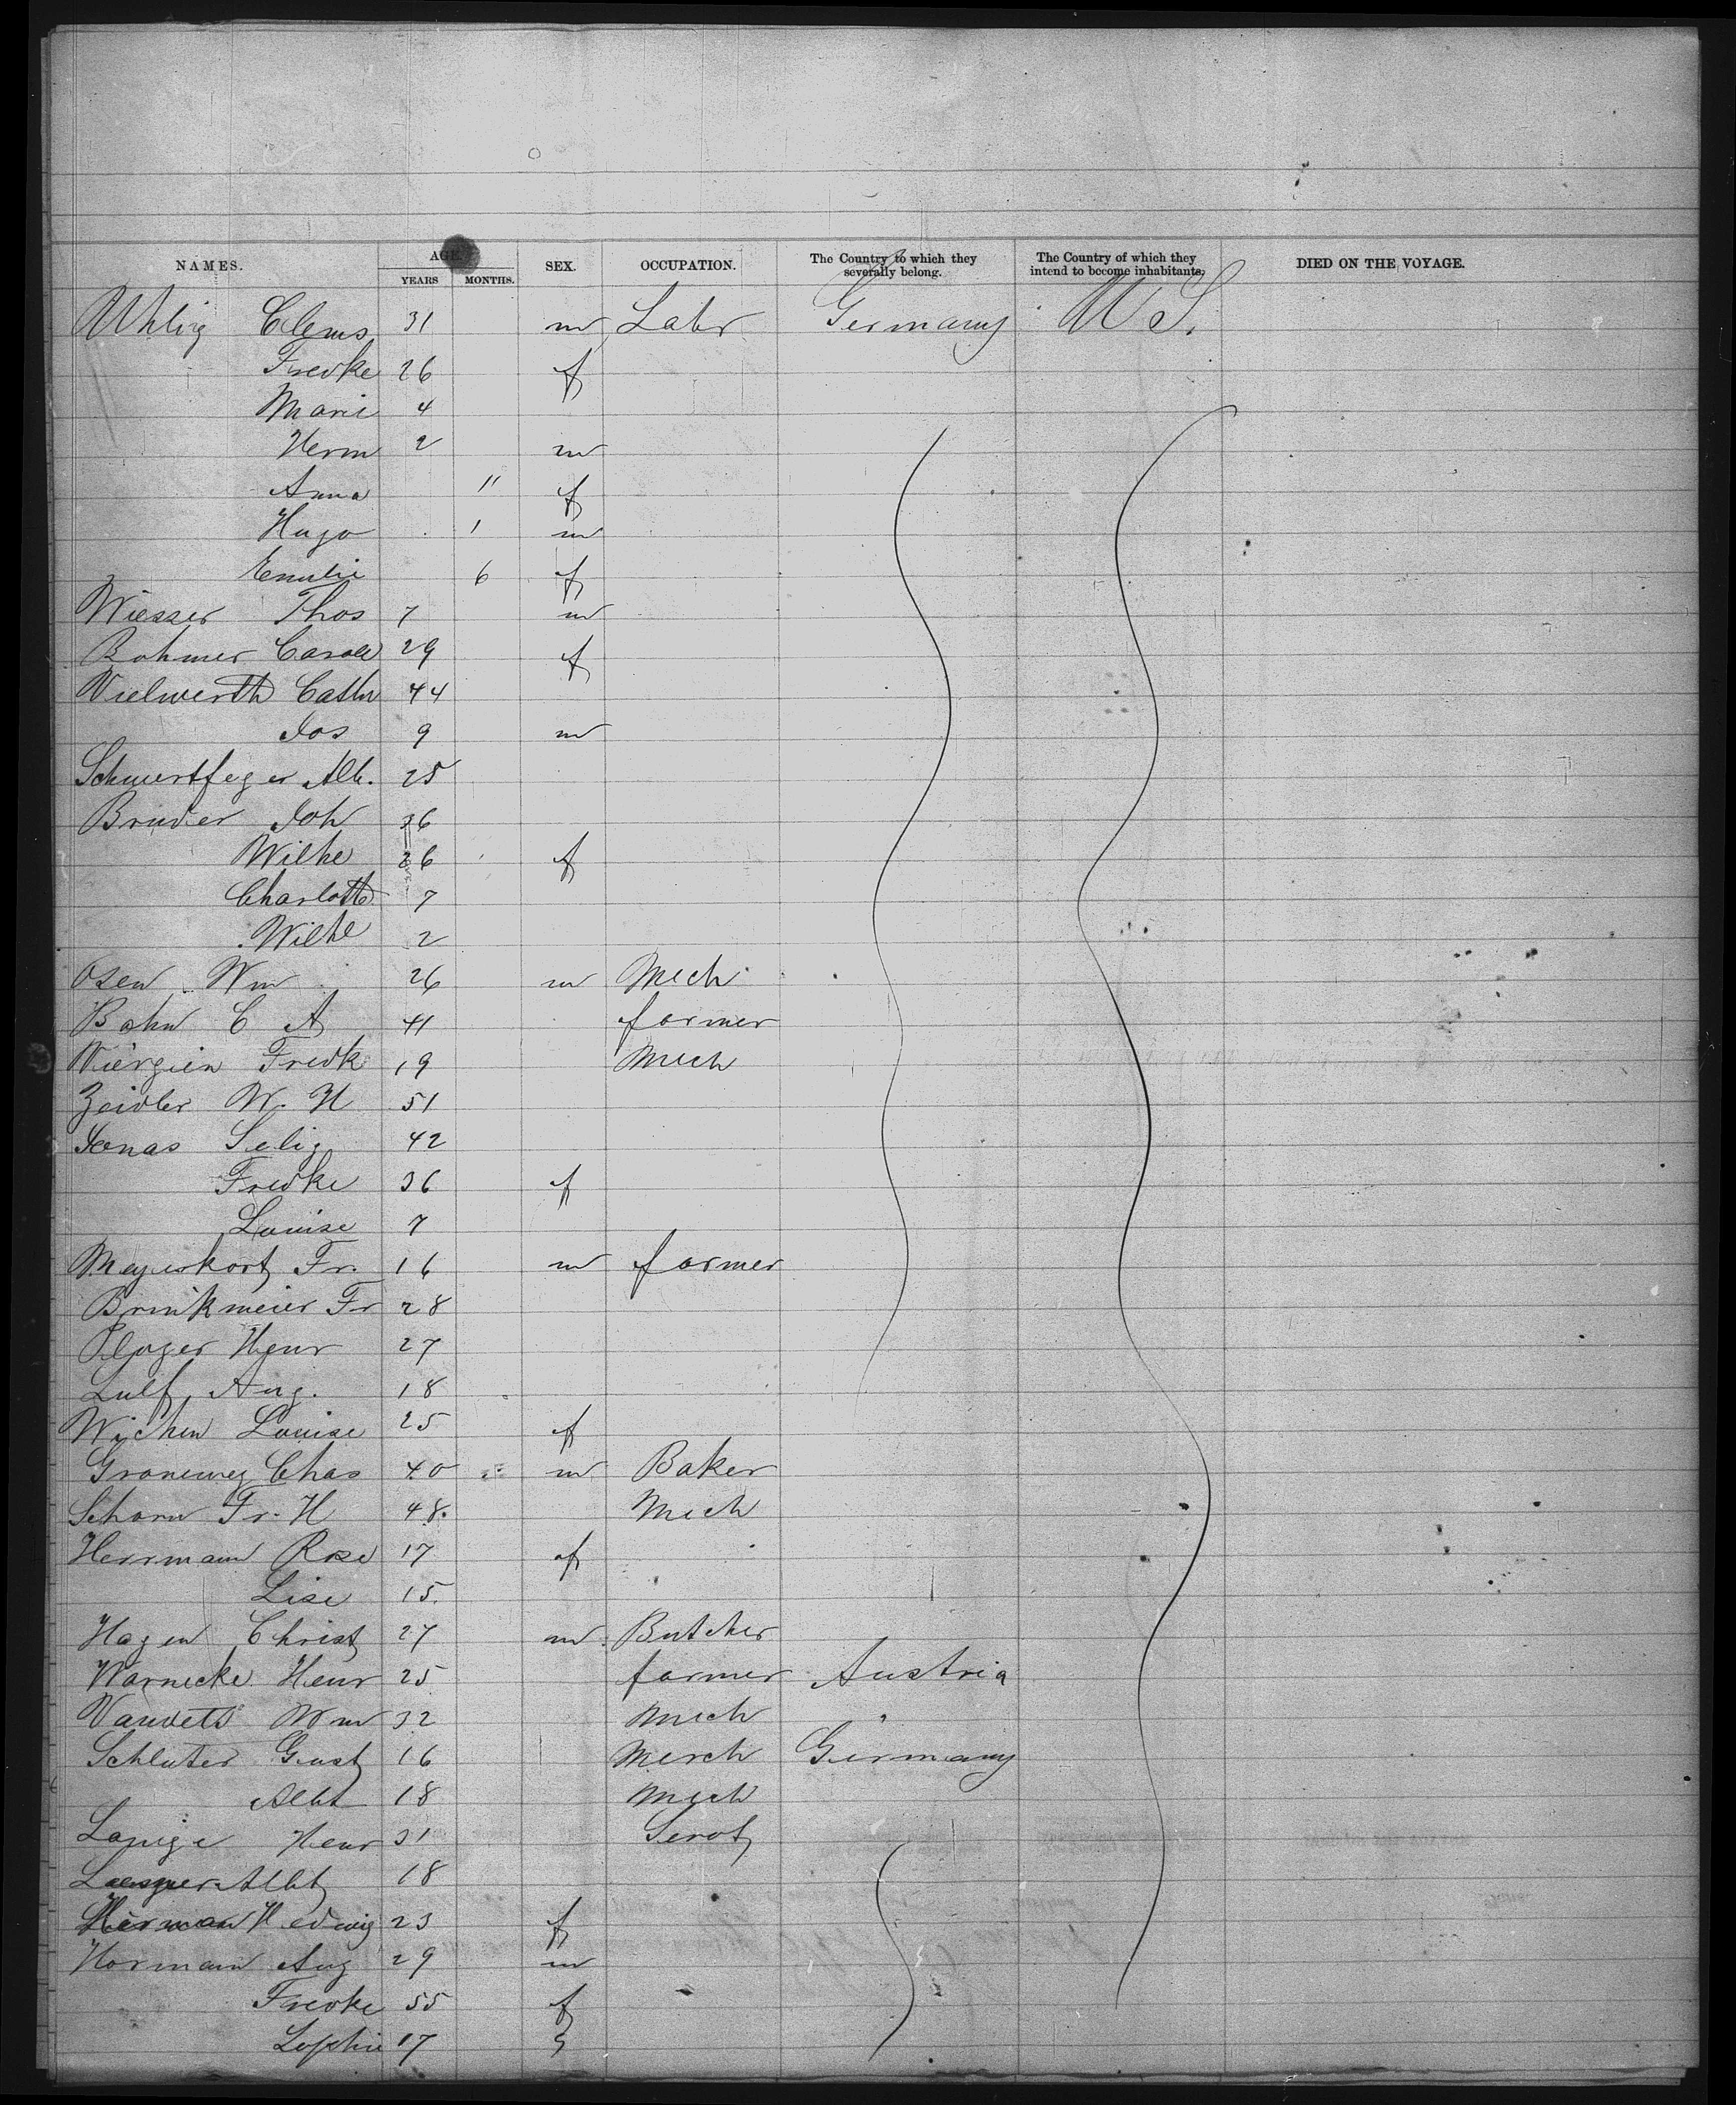 NAMES. AGE. SEX. OCCUPATION. The Country to which they severally belong. The Country of which they intend to become inhabitants. DIED ON THE VOYAGE.
YEARS MONTHS.
Uhlig Clems 31 m Labr Germany U S.
Fredke 26 f
Marie 4
Herm 2 m
Anna 11 f
Hugo 1 m
Emilie 6 f
Wiesser Thos 7 m
Bohmer Carole 29 f
Vielwerth Cathr 44
Jos 9 m
Schwertfeger Alb. 25
Bruder Joh 36
Wilhe 26 f
Charlotte 7
Wilhe 2
Osen Wm 26 m Mech
Bahn C A 41 farmer
Viergien Fredk 19 Mech
Zeidler W. H 51
Jonas Selig 42
Fredke 36 f
Louise 7
Meyerkort Fr. 16 m farmer
Brinkmeier Fr 28
Ploger Henr 27
Lulf Aug. 18
Wichen Louise 25 f
Groneweg Chas 40 m Baker
Schorn Fr. H 48. Mech
Herrmann Rose 17 f
Lise 15.
Hagen Christ 27 m Butcher
Warnecke Henr 25 farmer Austria
Wm 32 Mech "
Schluter Gust 16 Merch Germany
Albt 18 Mech
Henr 31 Servt
Albt 18
Herman Hedwig 23 f
Hormann Aug 29 m
Fredke 55 f
Sophie 17 "